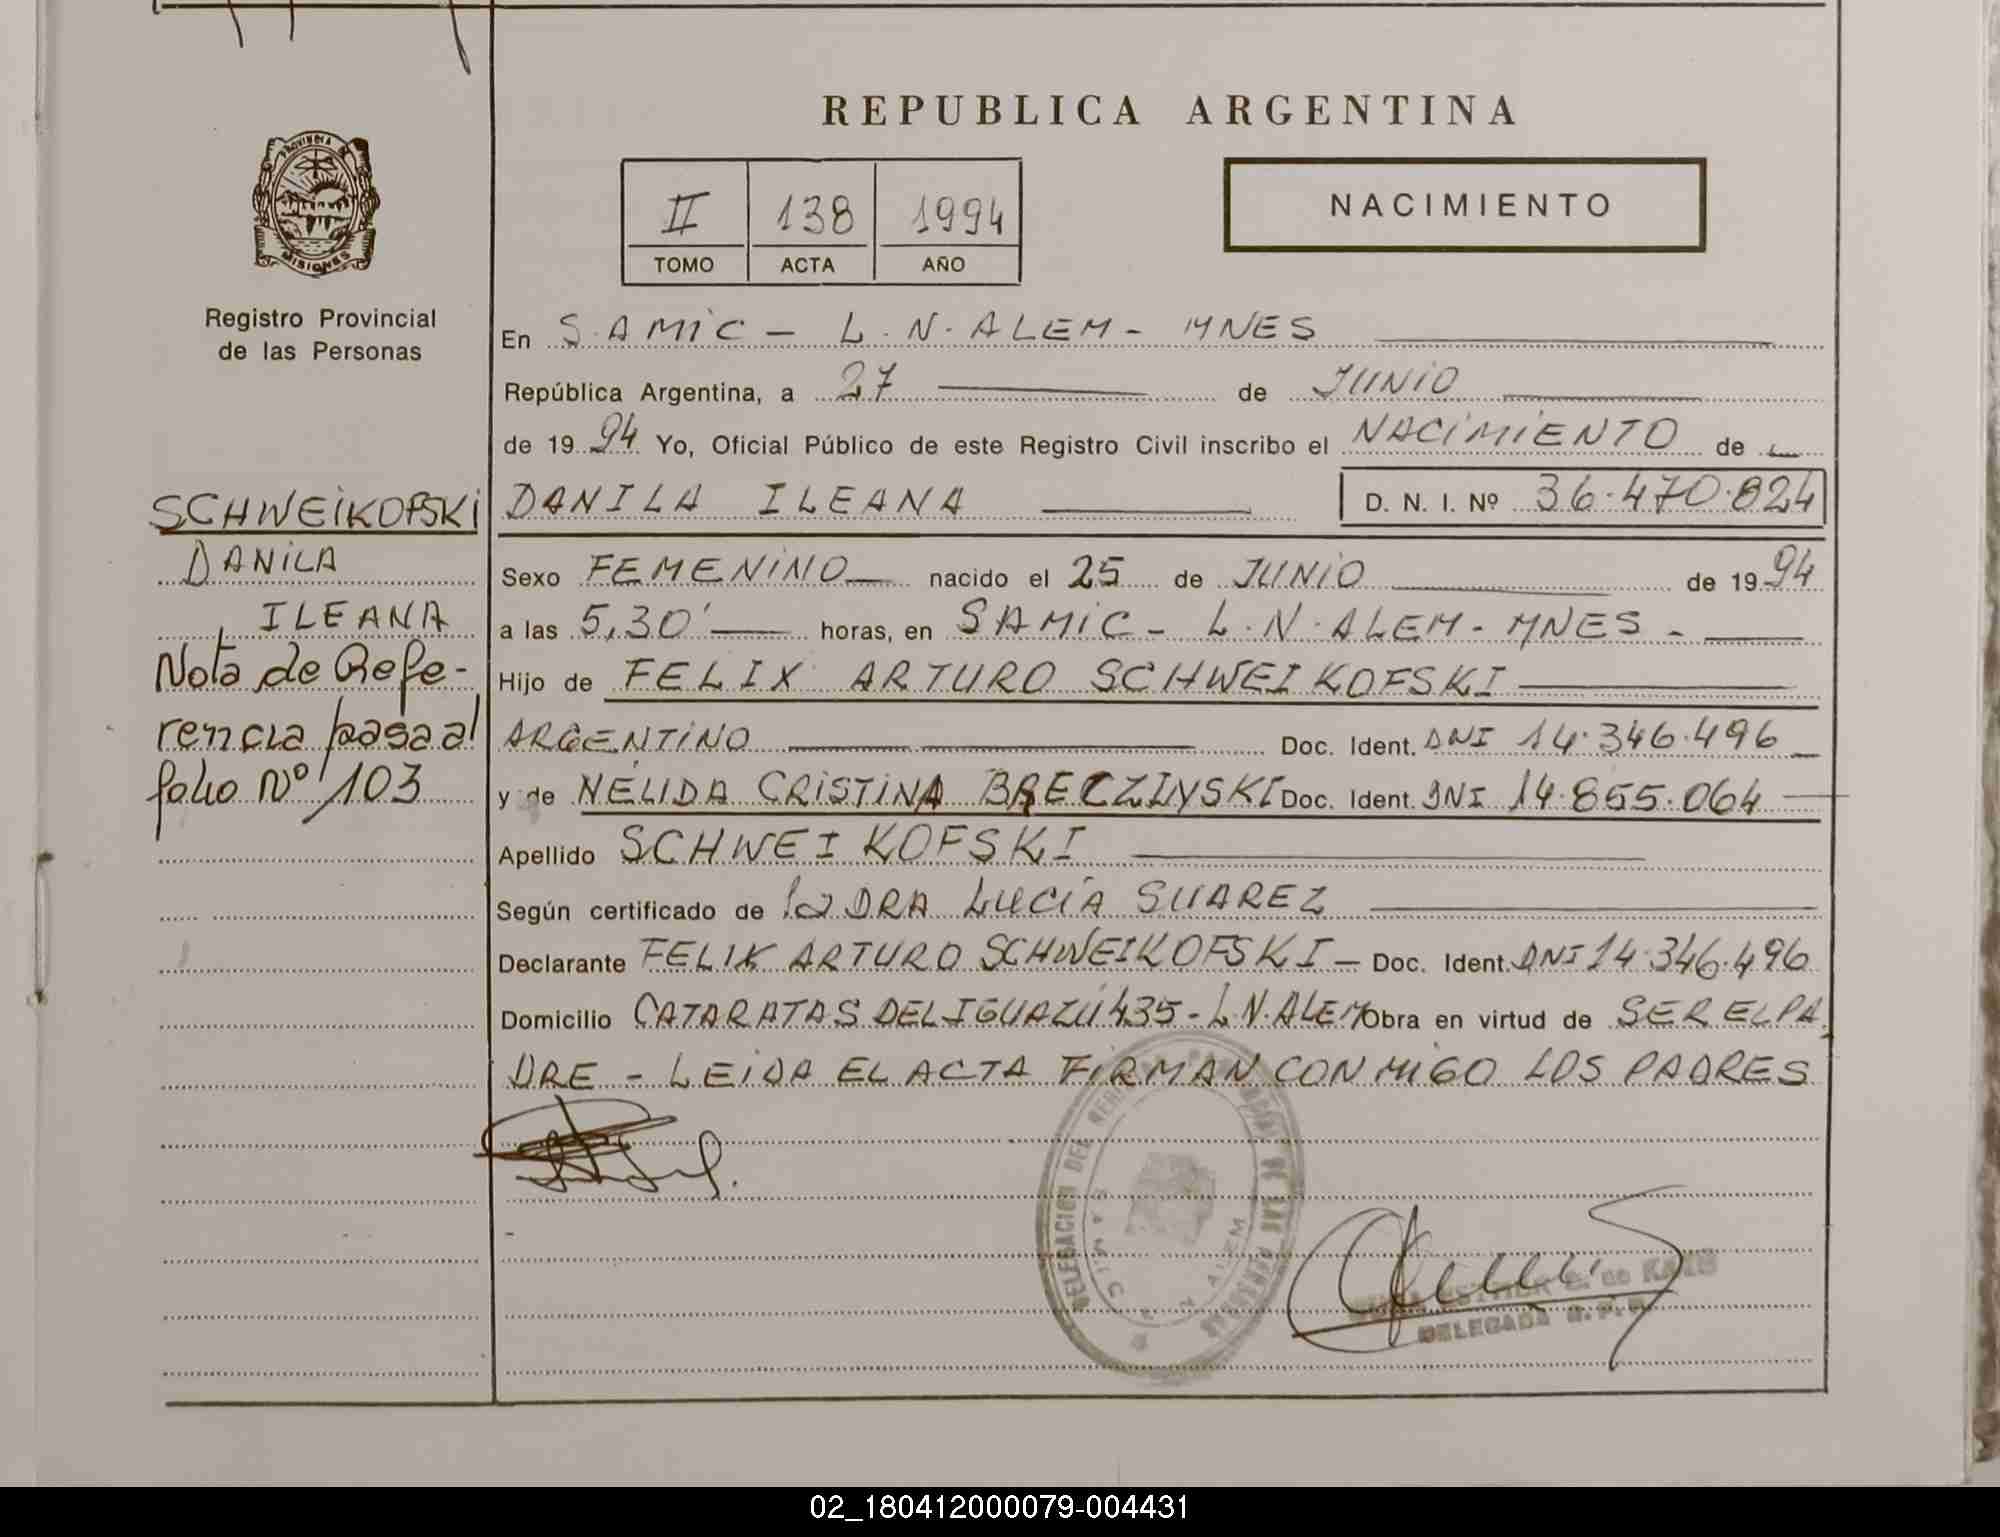 REPUBLICA ARGENTINA
PROVINCIA DE
MISIONES
Registro Provincial
de las Personas
II 138 1994
TOMO ACTA AÑO
NACIMIENTO
En S.AMIC - L.N.ALEM - MNES
República Argentina, a 27 de JUNIO
de 19 94 Yo, Oficial Público de este Registro Civil inscribo el NACIMIENTO de
SCHWEIKOFSKI
DANILA
ILEANA
Nota de Refe-
rencia pasa al
folio Nº 103
DANILA ILEANA D. N. I. Nº 36.470.824
Sexo FEMENINO nacido el 25 de JUNIO de 19 94
a las 5,30' horas, en SAMIC - L.N.ALEM - MNES -
Hijo de FELIX ARTURO SCHWEIKOFSKI
ARGENTINO Doc. Ident. DNI 14.346.496
y de NÉLIDA CRISTINA BRECZINSKI Doc. Ident. DNI 14.855.064
Apellido SCHWEIKOFSKI
Según certificado de la DRA LUCÍA SUAREZ
Declarante FELIX ARTURO SCHWEIKOFSKI - Doc. Ident. DNI 14.346.496
Domicilio CATARATAS DEL IGUAZÚ 435 - L.N.ALEM Obra en virtud de SER EL PA
DRE - LEIDA EL ACTA FIRMAN CONMIGO LOS PADRES
DELEGACION DEL DE LAS PERSONAS
ALEM
ESTHER de
DELEGADA R.P.P.
02_180412000079-004431